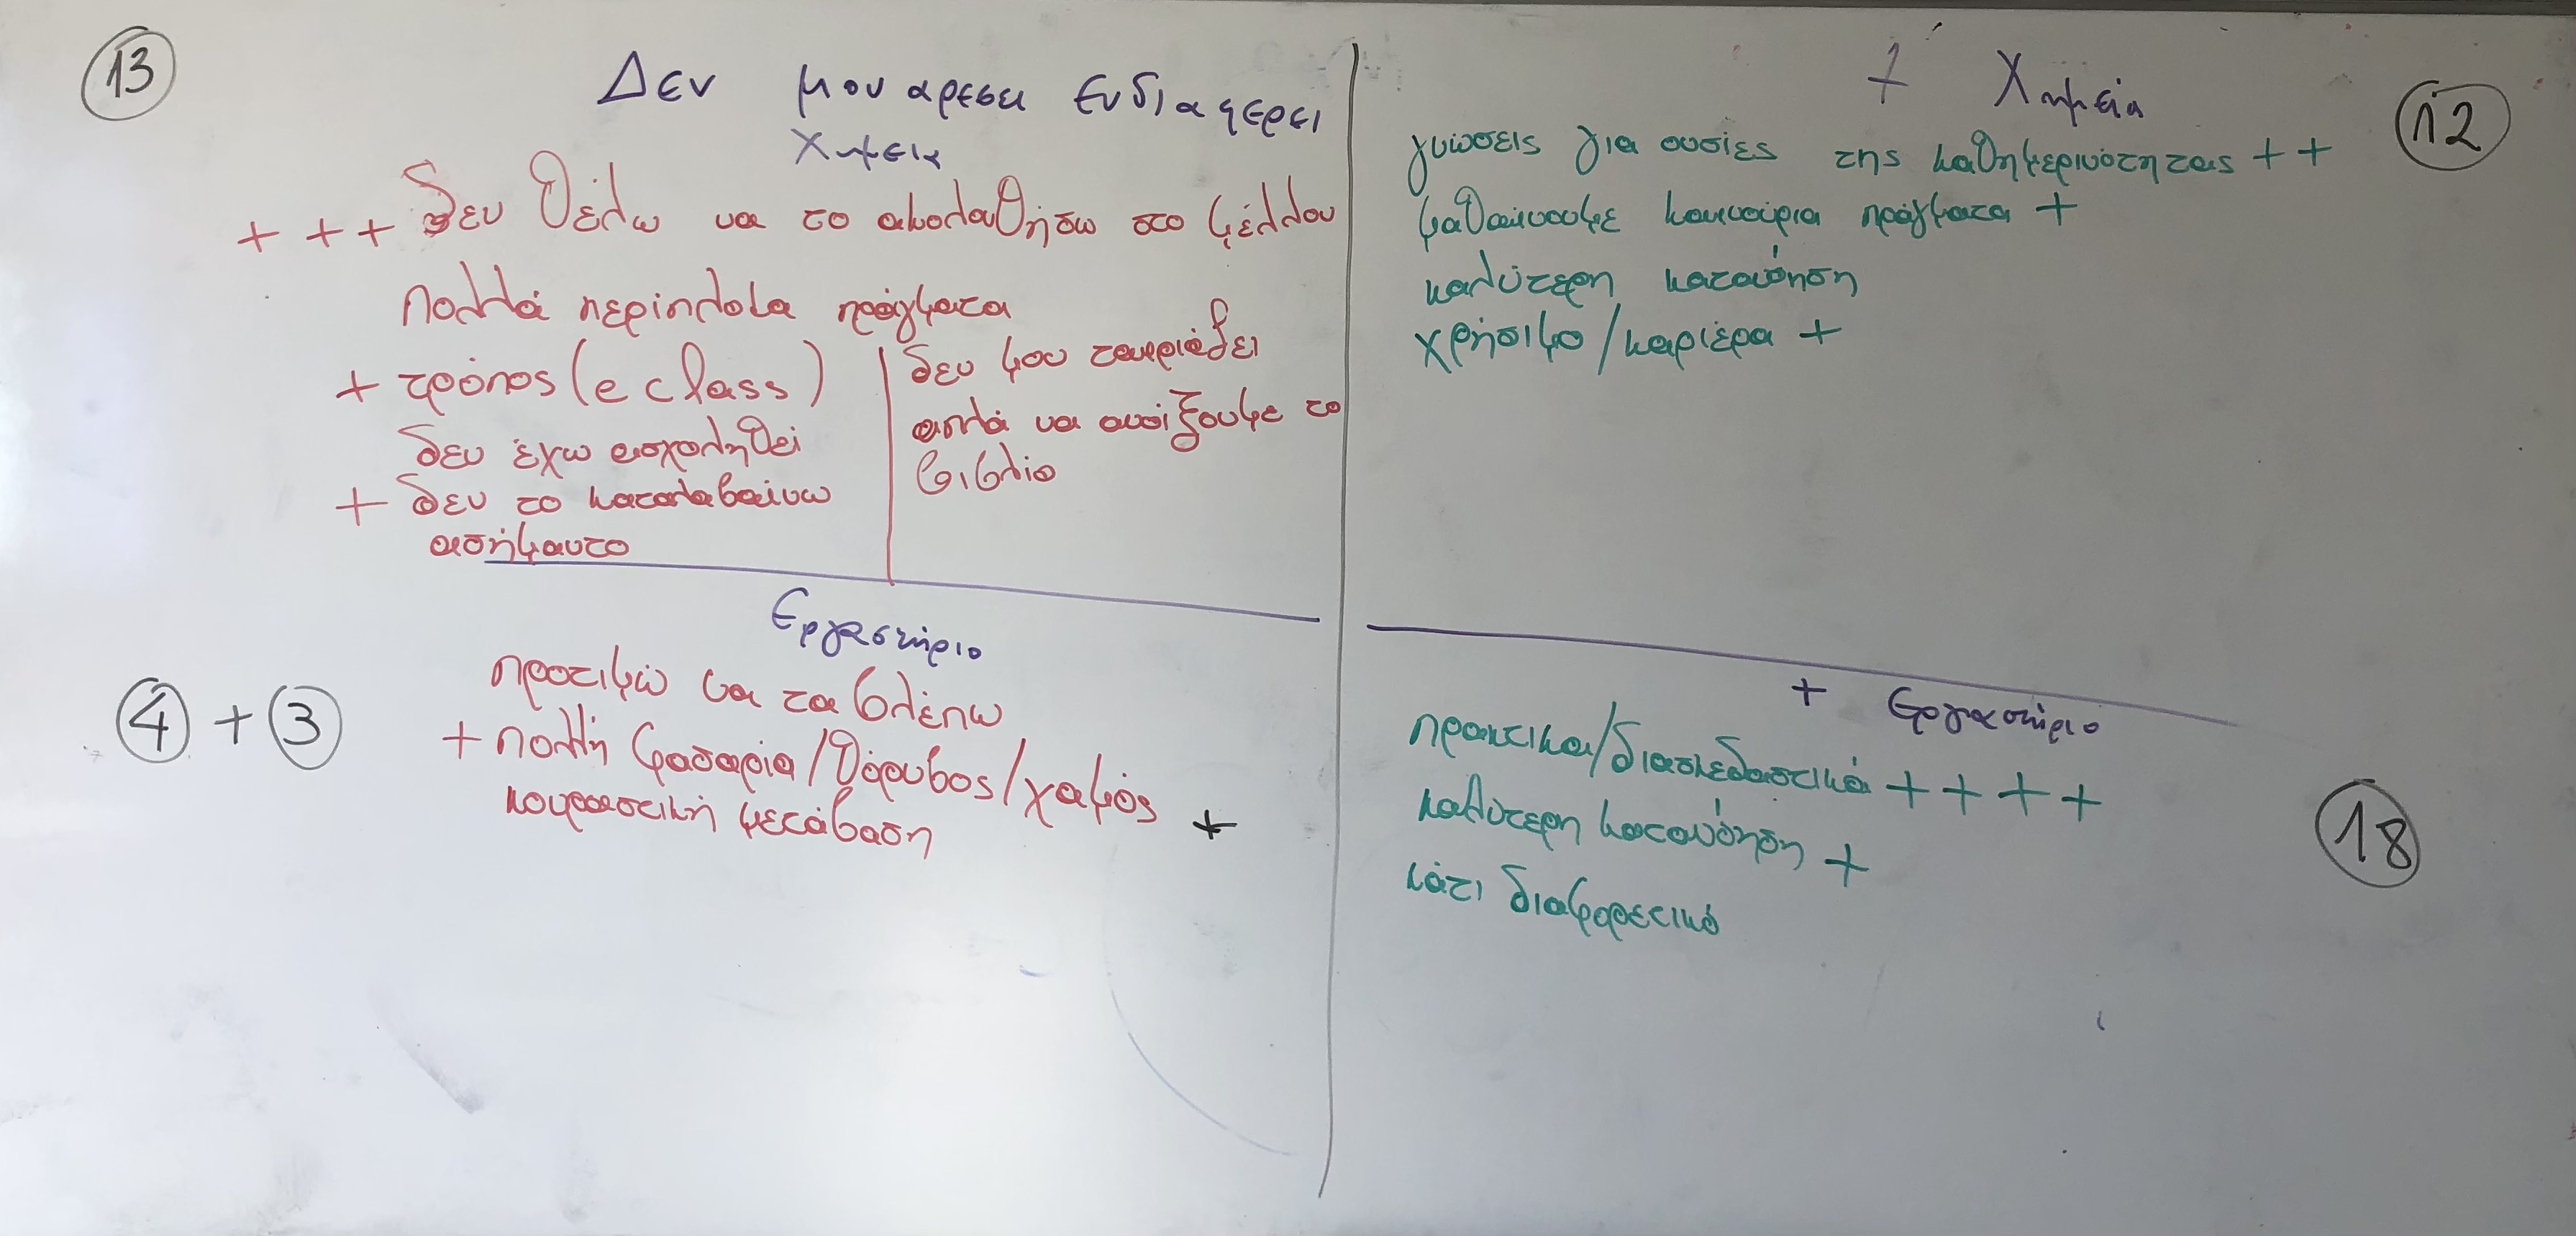 13
Δεν μου αρεσει ενδιαφερει
Χημεια
+ + + δεν θέλω να το ακολουθήσω στο μέλλον
πολλά περίπλοκα πράγματα
+ τρόπος (e class)
δεν έχω ασχοληθεί
+ δεν το καταλαβαίνω
ασήμαντο
δεν μου ταιριάζει
απλά να ανοίξουμε το
βιβλίο
+ Χημεία
12
γνώσεις για ουσίες της καθημερινότητας + +
μαθαίνουμε καινούρια πράγματα +
καλύτερη κατανόηση
χρήσιμο/καριέρα +
Εργαστήριο
4 + 3
προτιμώ να τα βλέπω
+ πολλή φασαρία/θόρυβος/χαμός +
κουραστική μετάβαση
+ Εργαστήριο
πρακτικα/διασκεδαστικά + + + +
καλύτερη κατανόηση +
κάτι διαφορετικό
18